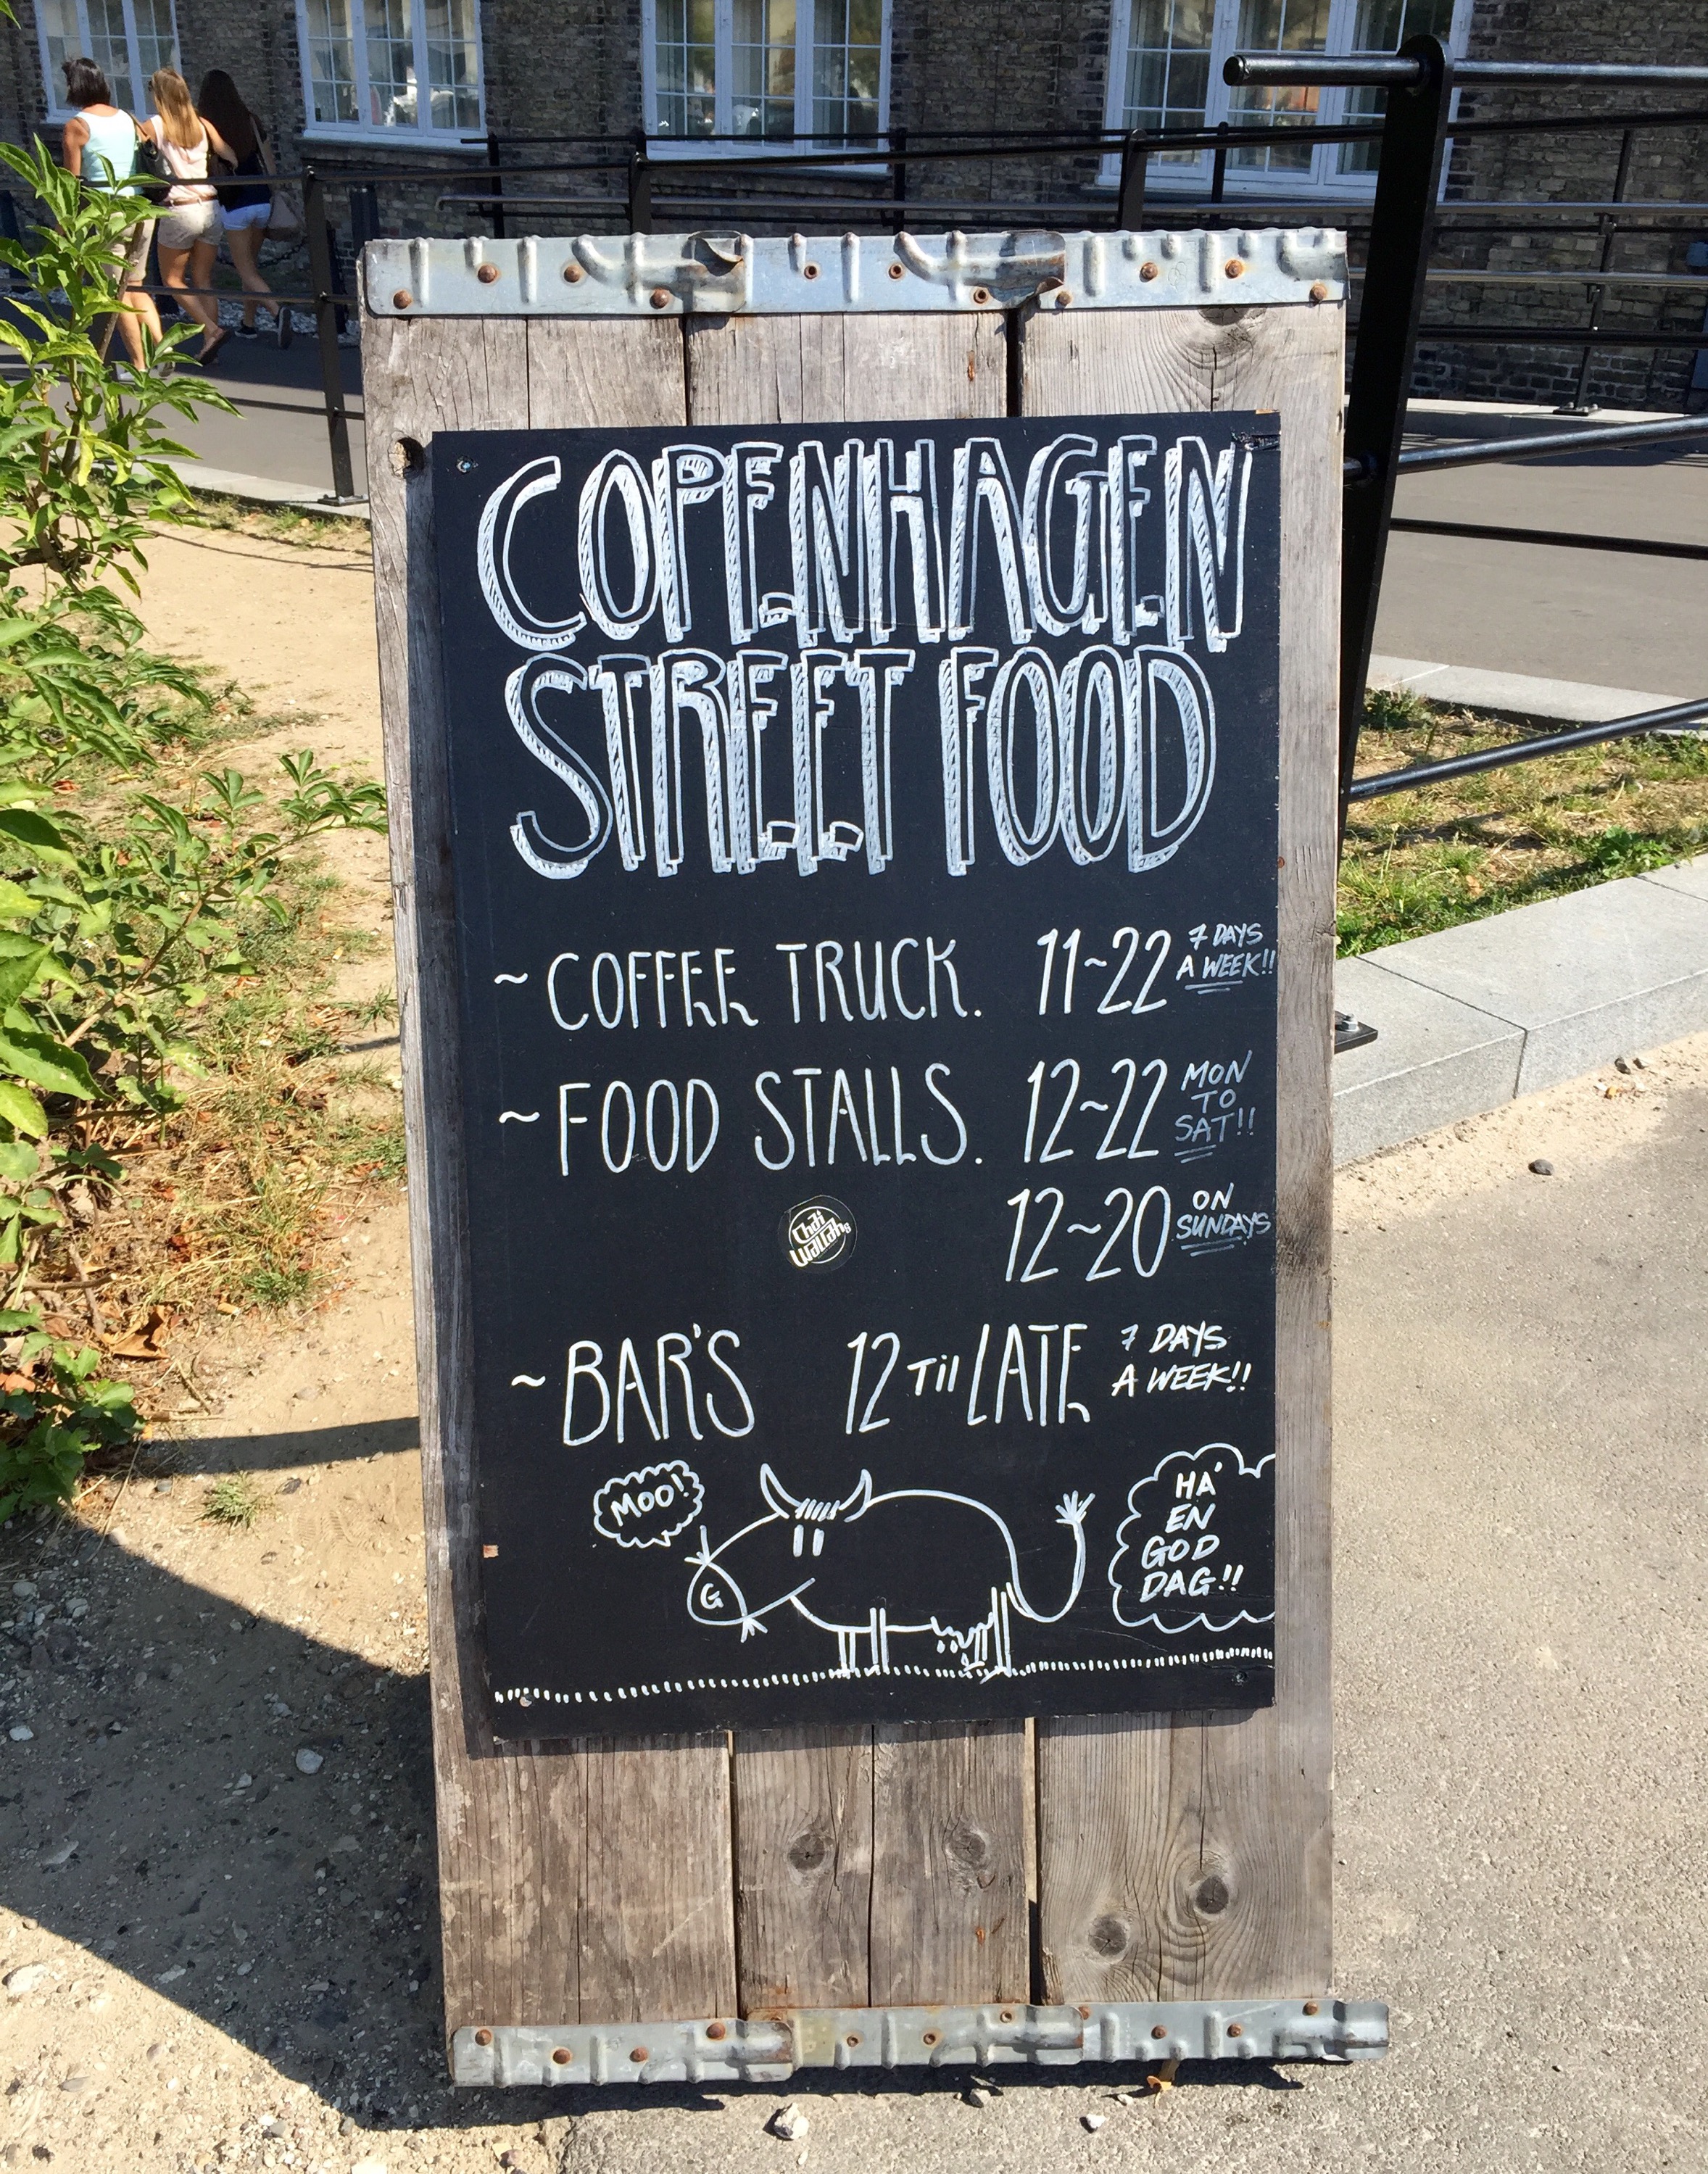 COPENHAGEN
STREET FOOD
~ COFFEE TRUCK. 11~22 7 DAYS
A WEEK!!
~ FOOD STALLS. 12~22 MON
TO
SAT!!
12~20 ON
SUNDAYS
Chai
Wallahs
~ BAR'S 12 Til LATE 7 DAYS
A WEEK!!
MOO!
G
HA'
EN
GOD
DAG!!